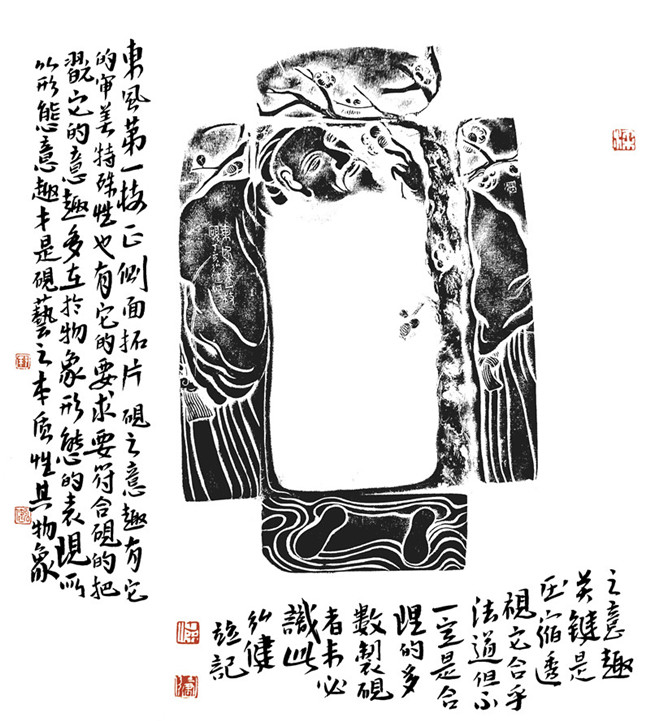 東風第一枝正側面拓片 硯之意趣有它
的审美特殊性也有它的要求要符合硯的把
翫它的意趣多在於物象形態的表現所
以形態意趣才是硯藝之本质性其物象
之意趣
关鍵是
压缩透
視它合乎
法道但不
一定是合
理的多
数製硯
者未必
識此
健
記